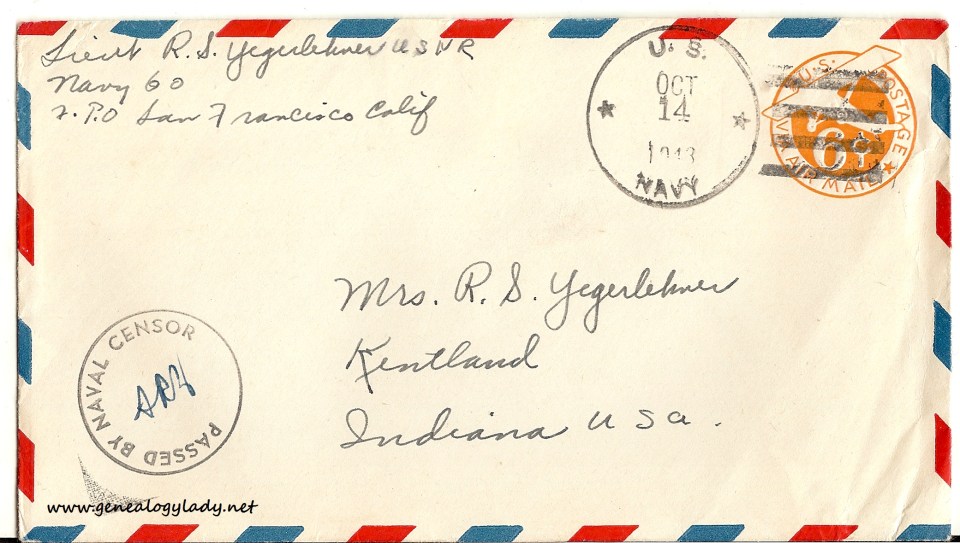 Lieut R. S. Yegerlehner USNR
Navy 60
F.P.O San Francisco Calif
U. S.
OCT
14
1943
NAVY
U.S. POSTAGE
6¢
VIA AIR MAIL
Mrs. R. S. Yegerlehner
Kentland
Indiana USA.
PASSED BY NAVAL CENSOR
www.genealogylady.net